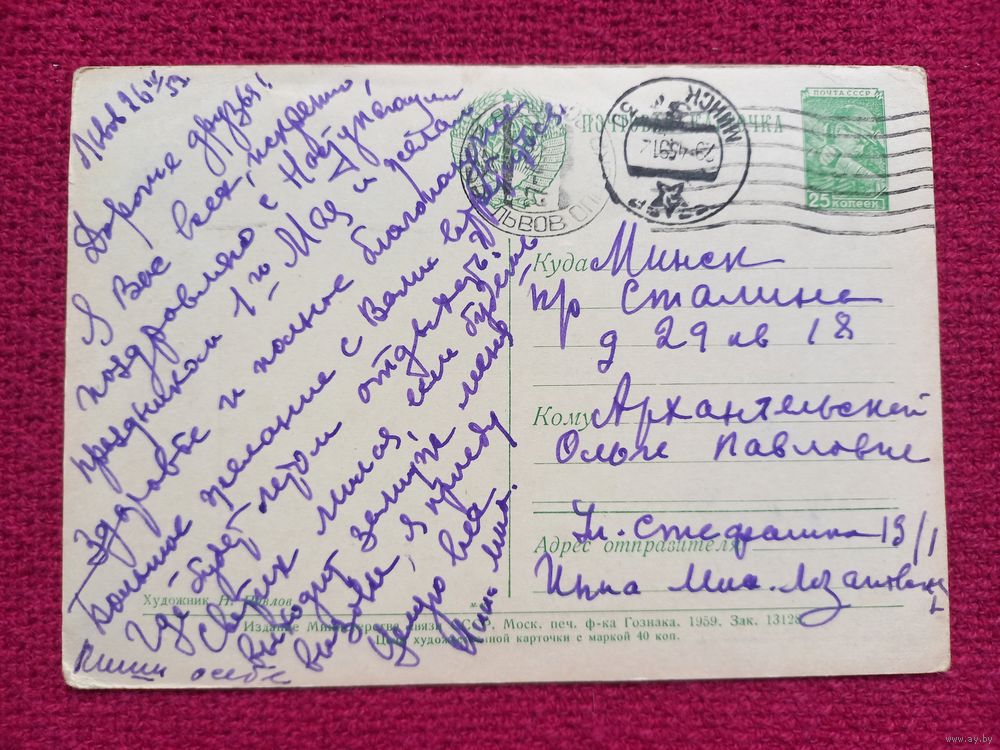 Львов 26 IV/59
Дорогие друзья!
Я Вас всех, искренно
поздравляю с Наступающим
праздником 1го Мая и желаю
Здоровье и полное благополучие
Большое желание с Вами
Где будет летом отдыхать.
Светик милая, если будешь
выходить замуж меня
вызови, я приеду
Целую всех
Пиши о себе
ПОЧТОВАЯ КАРТОЧКА
ПОЧТА СССР
25 КОПЕЕК
МИНСК
ЛЬВОВ
Куда Минск
пр Сталина
д 29 кв 18
Кому Архангельской
Ольге Павловне
Адрес отправителя
Ул. Стефаника 13/1
Инна Мих.
Художник Н. Павлов
Издание Министерства связи СССР. Моск. печ. ф-ка Гознака. 1959. Зак. 13128
Цена художественной карточки с маркой 40 коп.
www.ay.by